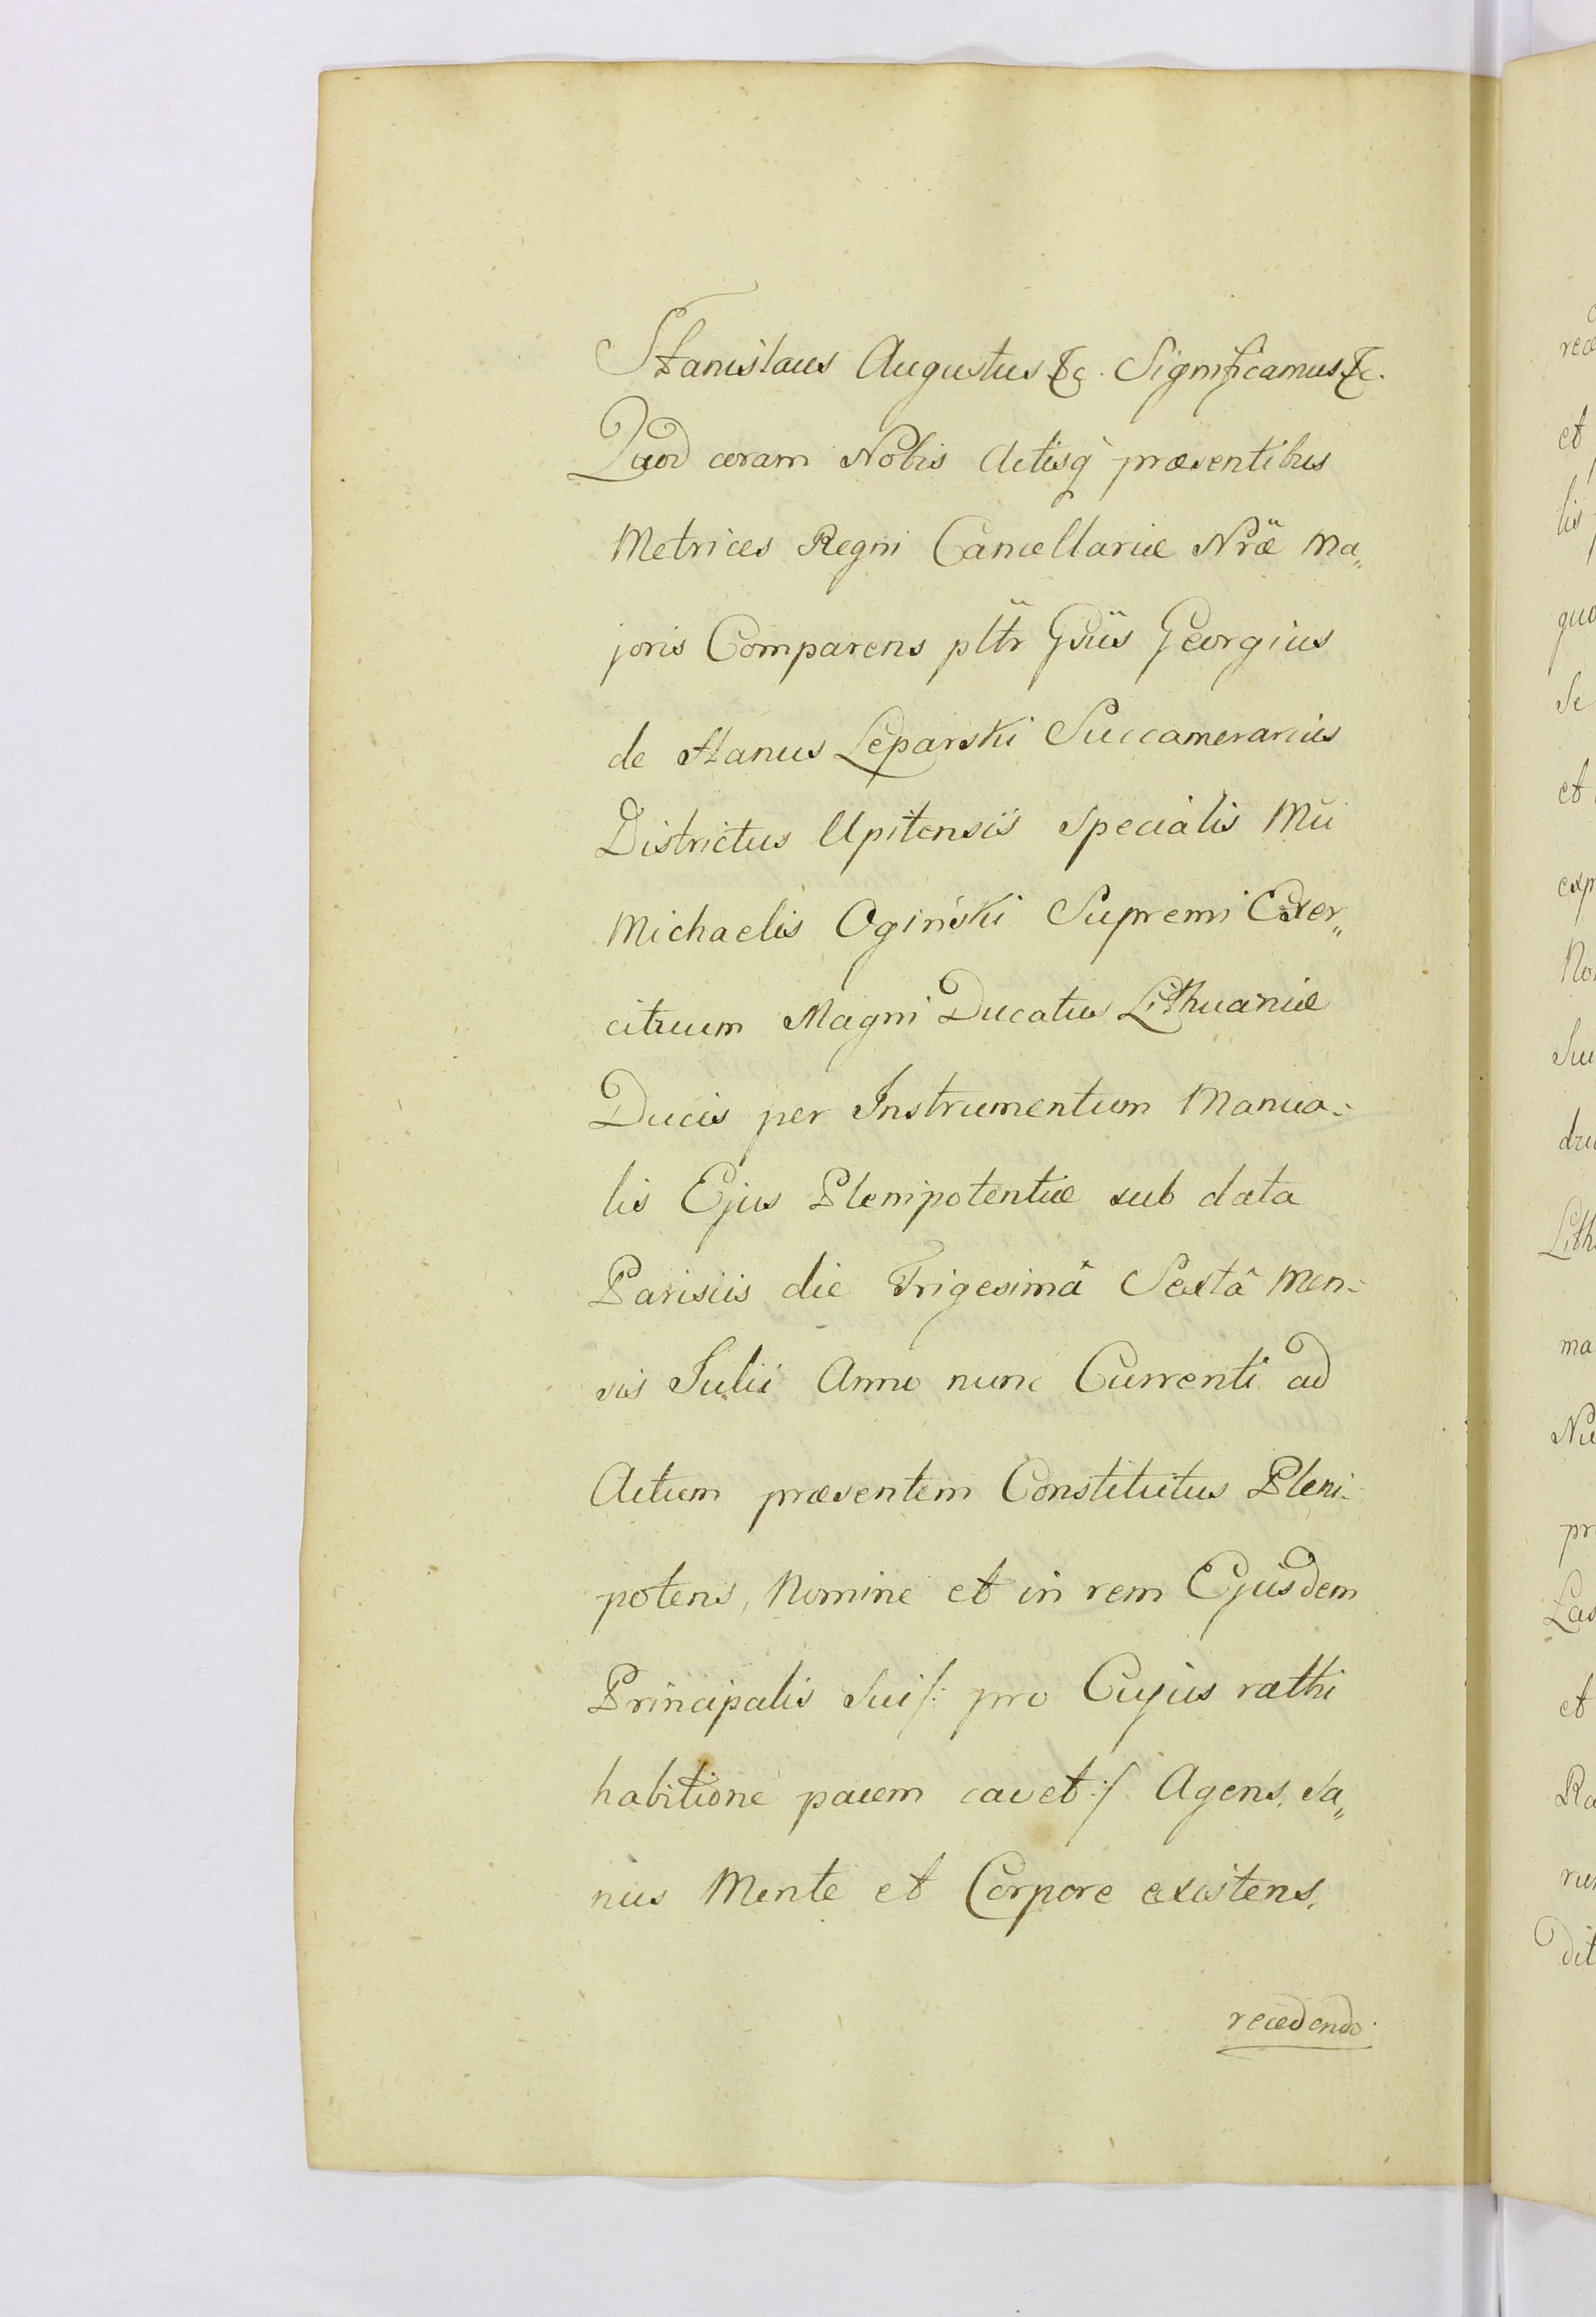 Stanislaus Augustus &c. Significamus &c.
Quod coram Nobis Actisq̀ præsentibus
Metrices Regni Cancellariæ Nr̃æ Ma„
joris Comparens pltr Gsüs Georgius
de Hanus Leparski Succamerarius
Districtus Upitensis Specialis Mci
Michaelis Ogiński Supremi Exer„
cituum Magni Ducatus Lithuaniæ
Ducis per Instrumentum Manua-
lis Ejus Plenipotentiæ sub data
Parisiis die Trigesimâ Sextâ Men-
sis Julii Anno nunc Currenti ad
Actum præsentem Constitutus Pleni-
potens, Nomine et in rem Ejusdem
Principalis Sui /: pro Cujus rathi
habitione pacem cavet :/ Agens, Sa„
nus Mente et Corpore existens,
recedendo